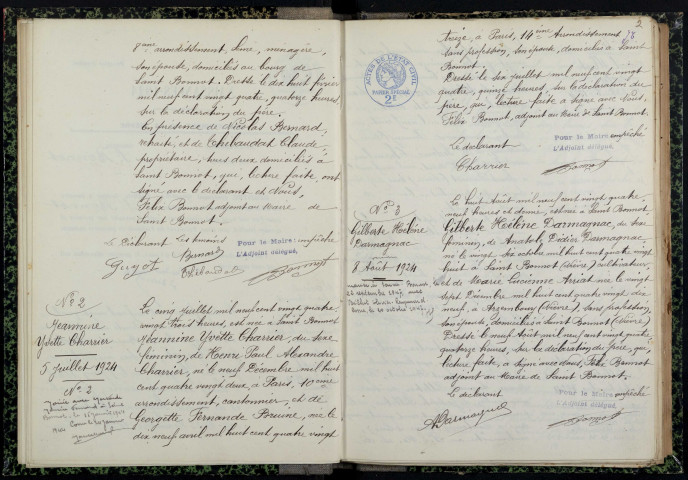 8ème arrondissement, Seine, ménagère,
son épouse, domiciliés au bourg de
Saint Bonnot. Dressé le dix huit février
mil neuf cent vingt quatre, quatorze heures,
sur la déclaration du père.
En présence de Nicolas Bernard,
retraité, et de Thibaudat Claude,
propriétaire, tous deux domiciliés à
Saint Bonnot, qui, lecture faite, ont
signé avec le déclarant et Nous,
Félix Bonnot adjoint au Maire de
Saint Bonnot.
Le Déclarant Les témoins
Pour le Maire empêché
L'Adjoint délégué,
Bernard
Thibaudat
Bonnot
No 2
Jeannine
Yvette Charrier
5 juillet 1924
No 2
Le cinq juillet mil neuf cent vingt quatre
vingt trois heures, est née à Saint Bonnot
Jeannine Yvette Charrier, du sexe
féminin, de Henri Paul Alexandre
Charrier, né le neuf Décembre mil huit
cent quatre vingt douze, à Paris, 10ème
arrondissement, cantonnier, et de
Georgette Fernande Bruine, née le
dix neuf avril mil huit cent quatre vingt
2
treize, à Paris, 14ème Arrondissement
sans profession, son épouse, domiciliés à Saint
Bonnot.
Dressé le six juillet mil neuf cent vingt
quatre, quinze heures, sur la déclaration du
père, qui, lecture faite a signé avec Nous,
Félix Bonnot, adjoint au Maire de Saint Bonnot.
Le déclarant
Pour le Maire empêché
L'Adjoint délégué,
Charrier
Bonnot
ACTES DE L'ETAT CIVIL
PAPIER SPECIAL
2F
No 3
Gilberte Hélène
Darmagnac
8 Août 1924
Le huit Août mil neuf cent vingt quatre
neuf heures et demie, est née à Saint Bonnot,
Gilberte Hélène Darmagnac, du sexe
féminin, de Anatole Didier Darmagnac,
né le vingt six octobre mil huit cent quatre vingt
huit à Saint Bonnot (Nièvre) cultivateur,
et de Marie Lucienne née le vingt
sept Décembre mil huit cent quatre vingt dix
neuf, à Arzembouy (Nièvre), sans profession,
son épouse, domiciliés à Saint Bonnot (Nièvre).
Dressé le neuf Août mil neuf cent vingt quatre
quatorze heures, sur la déclaration du père, qui,
lecture faite, a signé avec Nous, Félix Bonnot
adjoint au Maire de Saint Bonnot.
Le déclarant
Pour le Maire empêché
L'Adjoint délégué,
Darmagnac
Bonnot